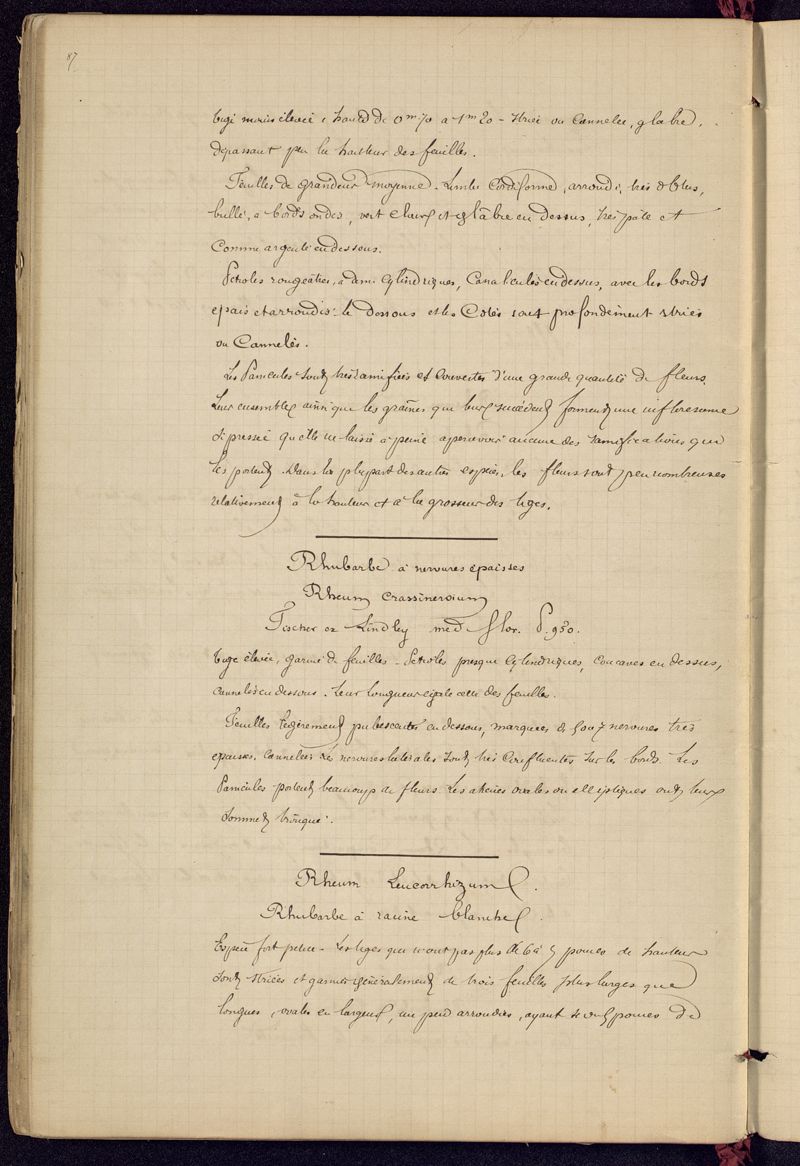 87
tige moins élevée, haute de 0m70 à 1m20 - striée ou cannelée, glabre,
dépassant peu la hauteur des feuilles.
Feuilles de grandeur moyenne. Limbe cordiforme, arrondi, très obtus,
bullé, à bords ondés, vert clair et glabre en dessus, très pâle et
comme argenté en dessous.
Pétioles rougeâtres, à demi cylindriques, canaliculés en dessus, avec les bords
épais et arrondis. le dessous et les côtés sont profondément striés
ou cannelés.
Les Panicules sont très ramifiées et couvertes d'une grande quantité de fleurs.
Leur ensemble ainsi que les graines qui leur succèdent forment une inflorescence
si pressée qu'elle ne laisse à peine apercevoir aucune des ramifications qui
les portent. Dans la plupart des autres espèces, les fleurs sont peu nombreuses
relativement à la hauteur et à la grosseur des tiges.
Rhubarbe à nervures épaisses
Rheum crassinervium
Fischer ex Lindley med flor. P. 950.
tige élevée, garnie de feuilles - Pétioles presque cylindriques, concaves en dessus,
cannelés en dessous. Leur longueur égale celle des feuilles.
Feuilles légèrement pubescentes en dessous, marquées de 5 ou 7 nervures très
épaisses. cannelées les nervures latérales sont très confluentes sur les bords. Les
Panicules portent beaucoup de fleurs. Les akènes ovales ou elliptiques ont leur
sommet tronqué.
Rheum Leucorrhizum.
Rhubarbe à racine blanche.
Espèce fort petite - Les tiges qui n'ont pas plus de 6 à 9 pouces de hauteur
sont striées et garnies généralement de trois feuilles plus larges que
longues, ovales en largeur, un peu arrondies, ayant pouces de